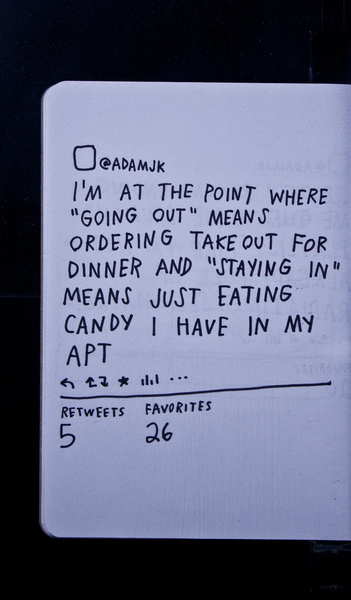 @ADAMJK
I'M AT THE POINT WHERE
"GOING OUT" MEANS
ORDERING TAKE OUT FOR
DINNER AND "STAYING IN"
MEANS JUST EATING
CANDY I HAVE IN MY
APT
RETWEETS FAVORITES
5 26